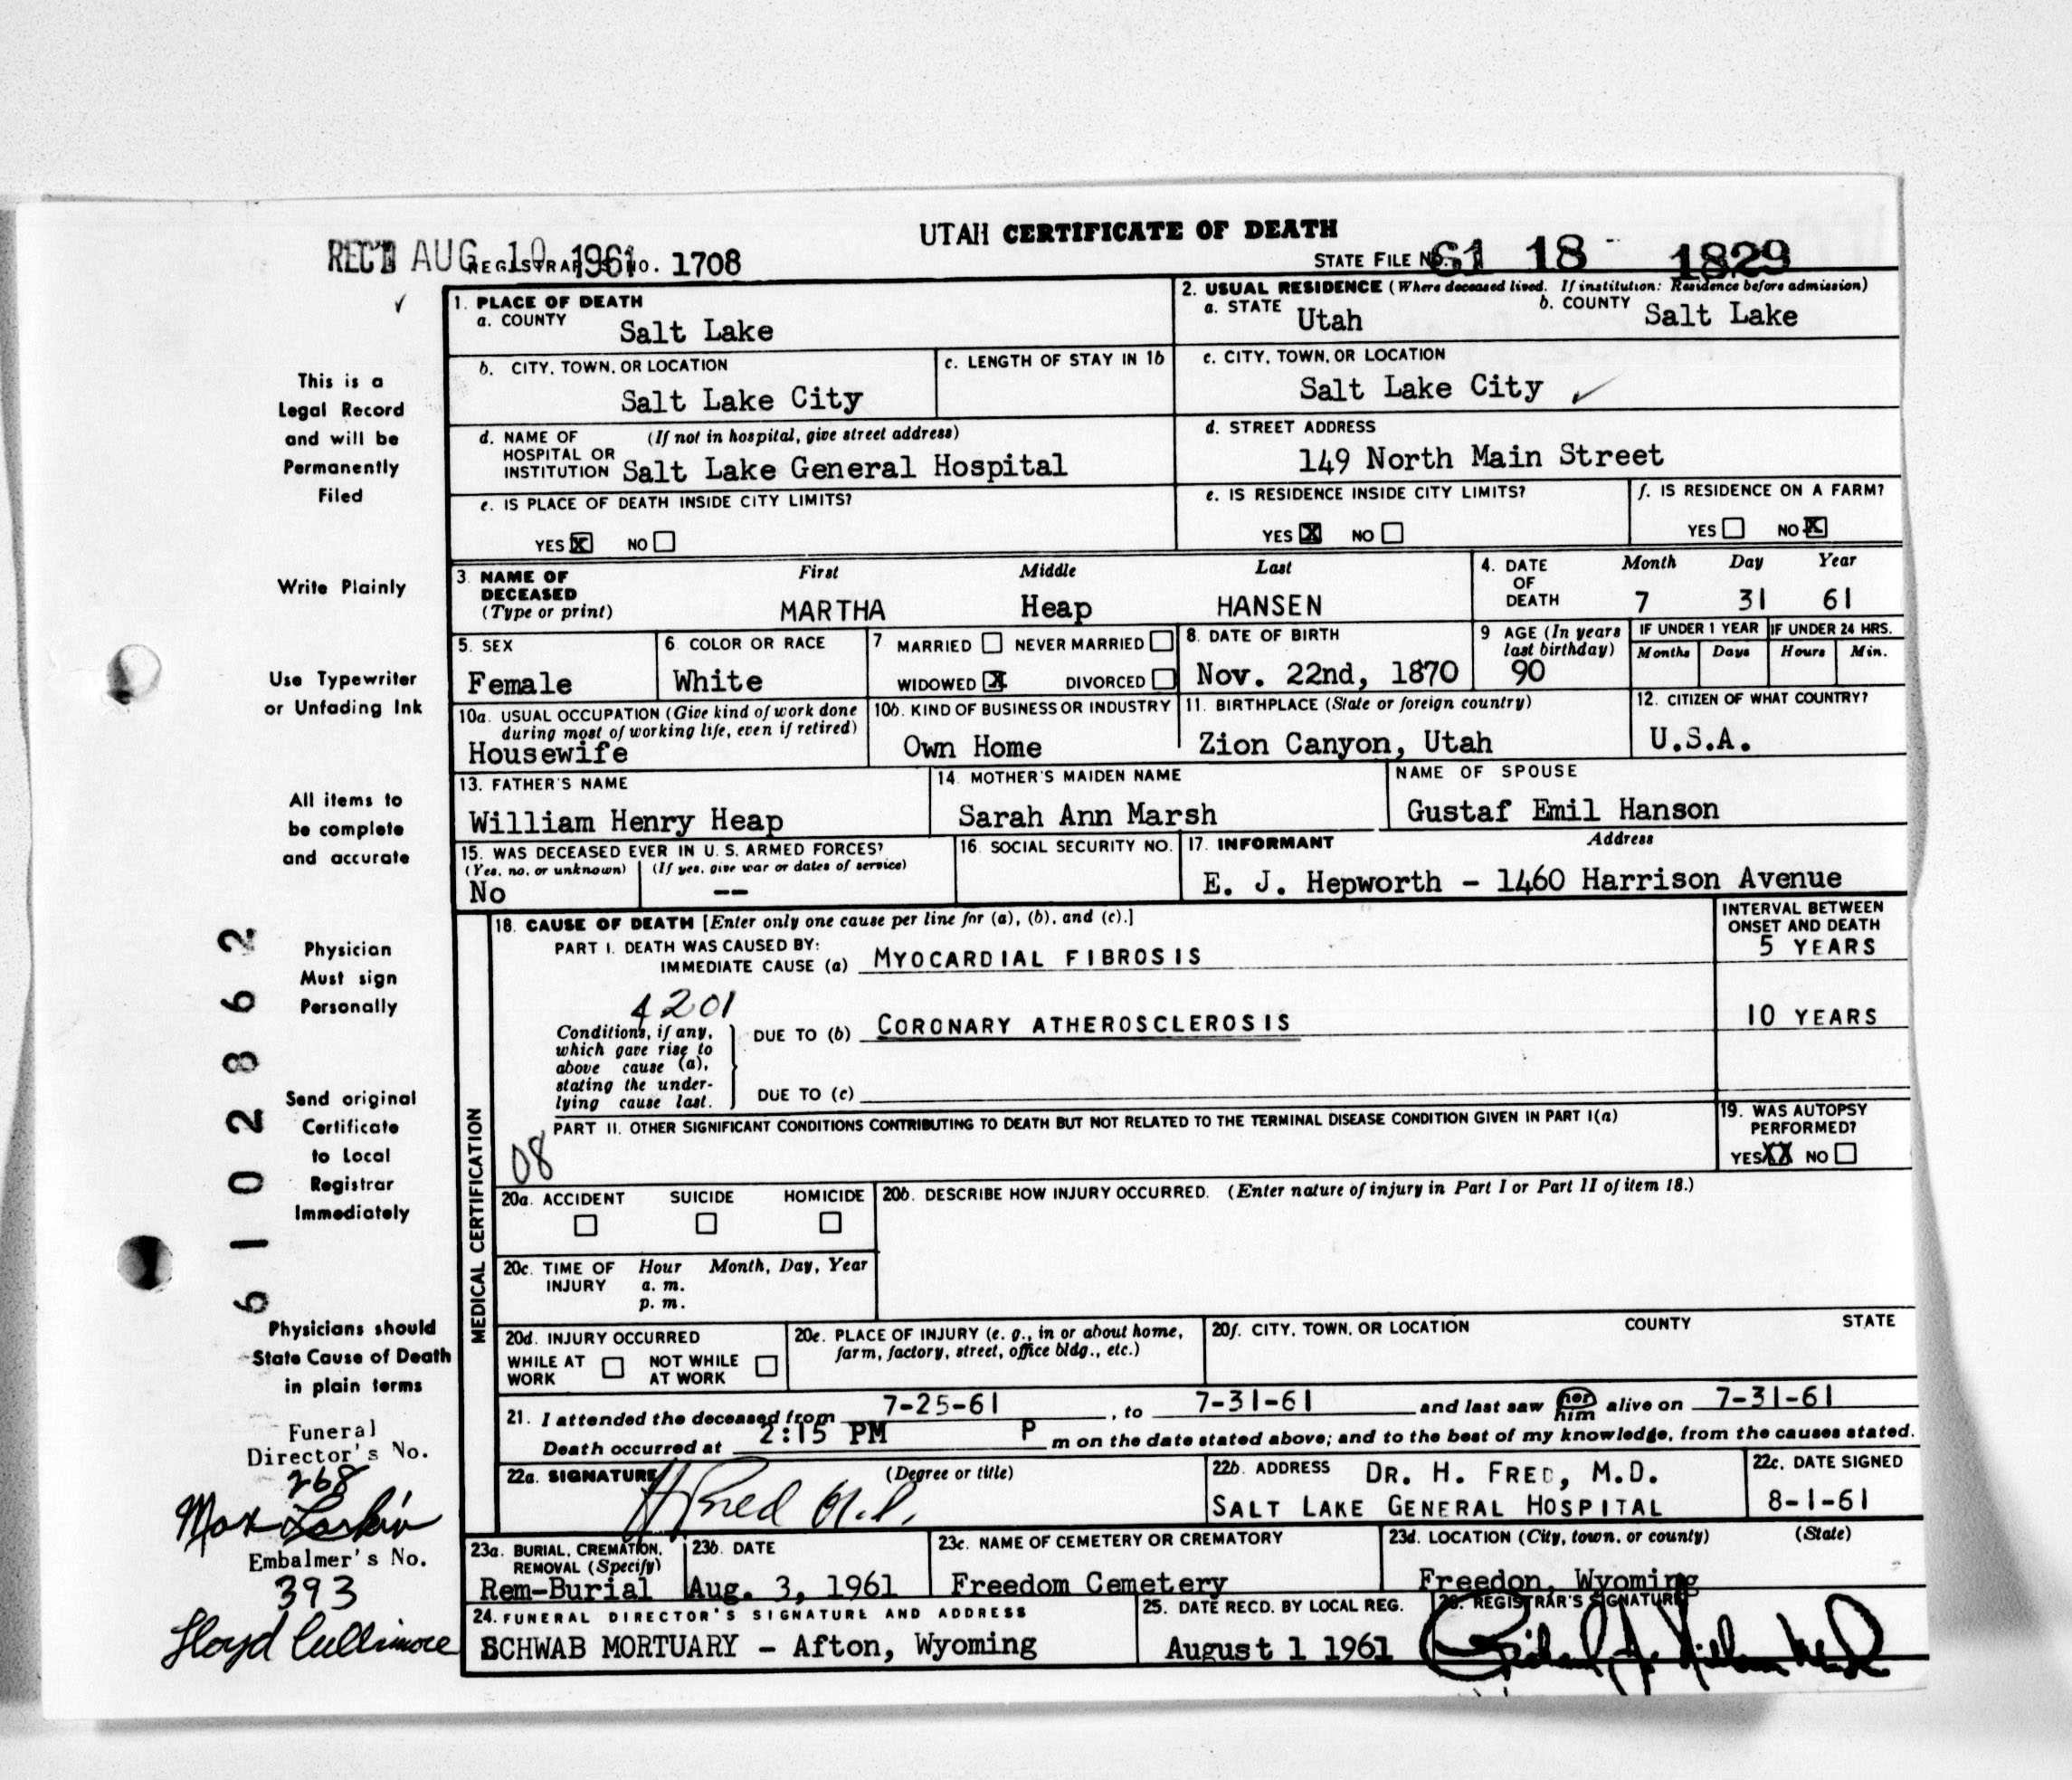 UTAH CERTIFICATE OF DEATH
REC'D AUG 10 1961
REGISTRAR'S NO. 1708
STATE FILE NO. 61 18 1829
1. PLACE OF DEATH
a. COUNTY Salt Lake
2. USUAL RESIDENCE (Where deceased lived. If institution: Residence before admission)
a. STATE Utah b. COUNTY Salt Lake
b. CITY, TOWN, OR LOCATION Salt Lake City
c. LENGTH OF STAY IN 1b
c. CITY, TOWN, OR LOCATION Salt Lake City ✓
d. NAME OF HOSPITAL OR INSTITUTION (If not in hospital, give street address) Salt Lake General Hospital
d. STREET ADDRESS 149 North Main Street
e. IS PLACE OF DEATH INSIDE CITY LIMITS?
YES X NO
e. IS RESIDENCE INSIDE CITY LIMITS?
YES X NO
f. IS RESIDENCE ON A FARM?
YES NO X
3. NAME OF DECEASED (Type or print)
First Middle Last
MARTHA Heap HANSEN
4. DATE OF DEATH
Month Day Year
7 31 61
5. SEX Female
6. COLOR OR RACE White
7 MARRIED NEVER MARRIED
WIDOWED X DIVORCED
8. DATE OF BIRTH Nov. 22nd, 1870
9 AGE (In years last birthday) 90
IF UNDER 1 YEAR Months Days
IF UNDER 24 HRS. Hours Min.
10a. USUAL OCCUPATION (Give kind of work done during most of working life, even if retired) Housewife
10b. KIND OF BUSINESS OR INDUSTRY Own Home
11. BIRTHPLACE (State or foreign country) Zion Canyon, Utah
12. CITIZEN OF WHAT COUNTRY? U.S.A.
13. FATHER'S NAME William Henry Heap
14. MOTHER'S MAIDEN NAME Sarah Ann Marsh
NAME OF SPOUSE Gustaf Emil Hanson
15. WAS DECEASED EVER IN U. S. ARMED FORCES?
(Yes, no, or unknown) (If yes, give war or dates of service)
No --
16. SOCIAL SECURITY NO.
17. INFORMANT Address
E. J. Hepworth - 1460 Harrison Avenue
MEDICAL CERTIFICATION
18. CAUSE OF DEATH [Enter only one cause per line for (a), (b), and (c).]
INTERVAL BETWEEN ONSET AND DEATH
PART I. DEATH WAS CAUSED BY:
IMMEDIATE CAUSE (a) MYOCARDIAL FIBROSIS 5 YEARS
4201
Conditions, if any, which gave rise to above cause (a), stating the underlying cause last.
DUE TO (b) CORONARY ATHEROSCLEROSIS 10 YEARS
DUE TO (c)
PART II. OTHER SIGNIFICANT CONDITIONS CONTRIBUTING TO DEATH BUT NOT RELATED TO THE TERMINAL DISEASE CONDITION GIVEN IN PART I(a)
08
19. WAS AUTOPSY PERFORMED?
YES XX NO
20a. ACCIDENT SUICIDE HOMICIDE
20b. DESCRIBE HOW INJURY OCCURRED. (Enter nature of injury in Part I or Part II of item 18.)
20c. TIME OF INJURY Hour Month, Day, Year
a. m.
p. m.
20d. INJURY OCCURRED
WHILE AT WORK NOT WHILE AT WORK
20e. PLACE OF INJURY (e. g., in or about home, farm, factory, street, office bldg., etc.)
20f. CITY, TOWN, OR LOCATION COUNTY STATE
21. I attended the deceased from 7-25-61, to 7-31-61 and last saw her him alive on 7-31-61
Death occurred at 2:15 PM P m on the date stated above; and to the best of my knowledge, from the causes stated.
22a. SIGNATURE (Degree or title)
H Fred M.D.
22b. ADDRESS DR. H. FRED, M.D.
SALT LAKE GENERAL HOSPITAL
22c. DATE SIGNED 8-1-61
23a. BURIAL, CREMATION, REMOVAL (Specify) Rem-Burial
23b. DATE Aug. 3, 1961
23c. NAME OF CEMETERY OR CREMATORY Freedom Cemetery
23d. LOCATION (City, town, or county) (State)
Freedon, Wyoming
24. FUNERAL DIRECTOR'S SIGNATURE AND ADDRESS
SCHWAB MORTUARY - Afton, Wyoming
25. DATE RECD. BY LOCAL REG. August 1 1961
26. REGISTRAR'S SIGNATURE
This is a
Legal Record
and will be
Permanently
Filed
Write Plainly
Use Typewriter
or Unfading Ink
All items to
be complete
and accurate
Physician
Must sign
Personally
Send original
Certificate
to Local
Registrar
Immediately
Physicians should
State Cause of Death
in plain terms
6102862
Funeral
Director's No.
268
Max Larkin
Embalmer's No.
393
Lloyd Cullimore